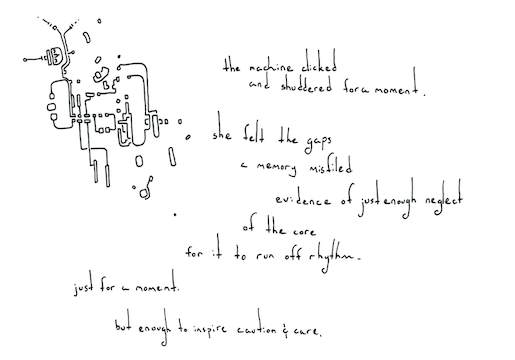 the machine clicked
and shuddered for a moment.
she felt the gaps
a memory misfiled
evidence of just enough neglect
of the core
for it to run off rhythm.
just for a moment.
but enough to inspire caution & care.